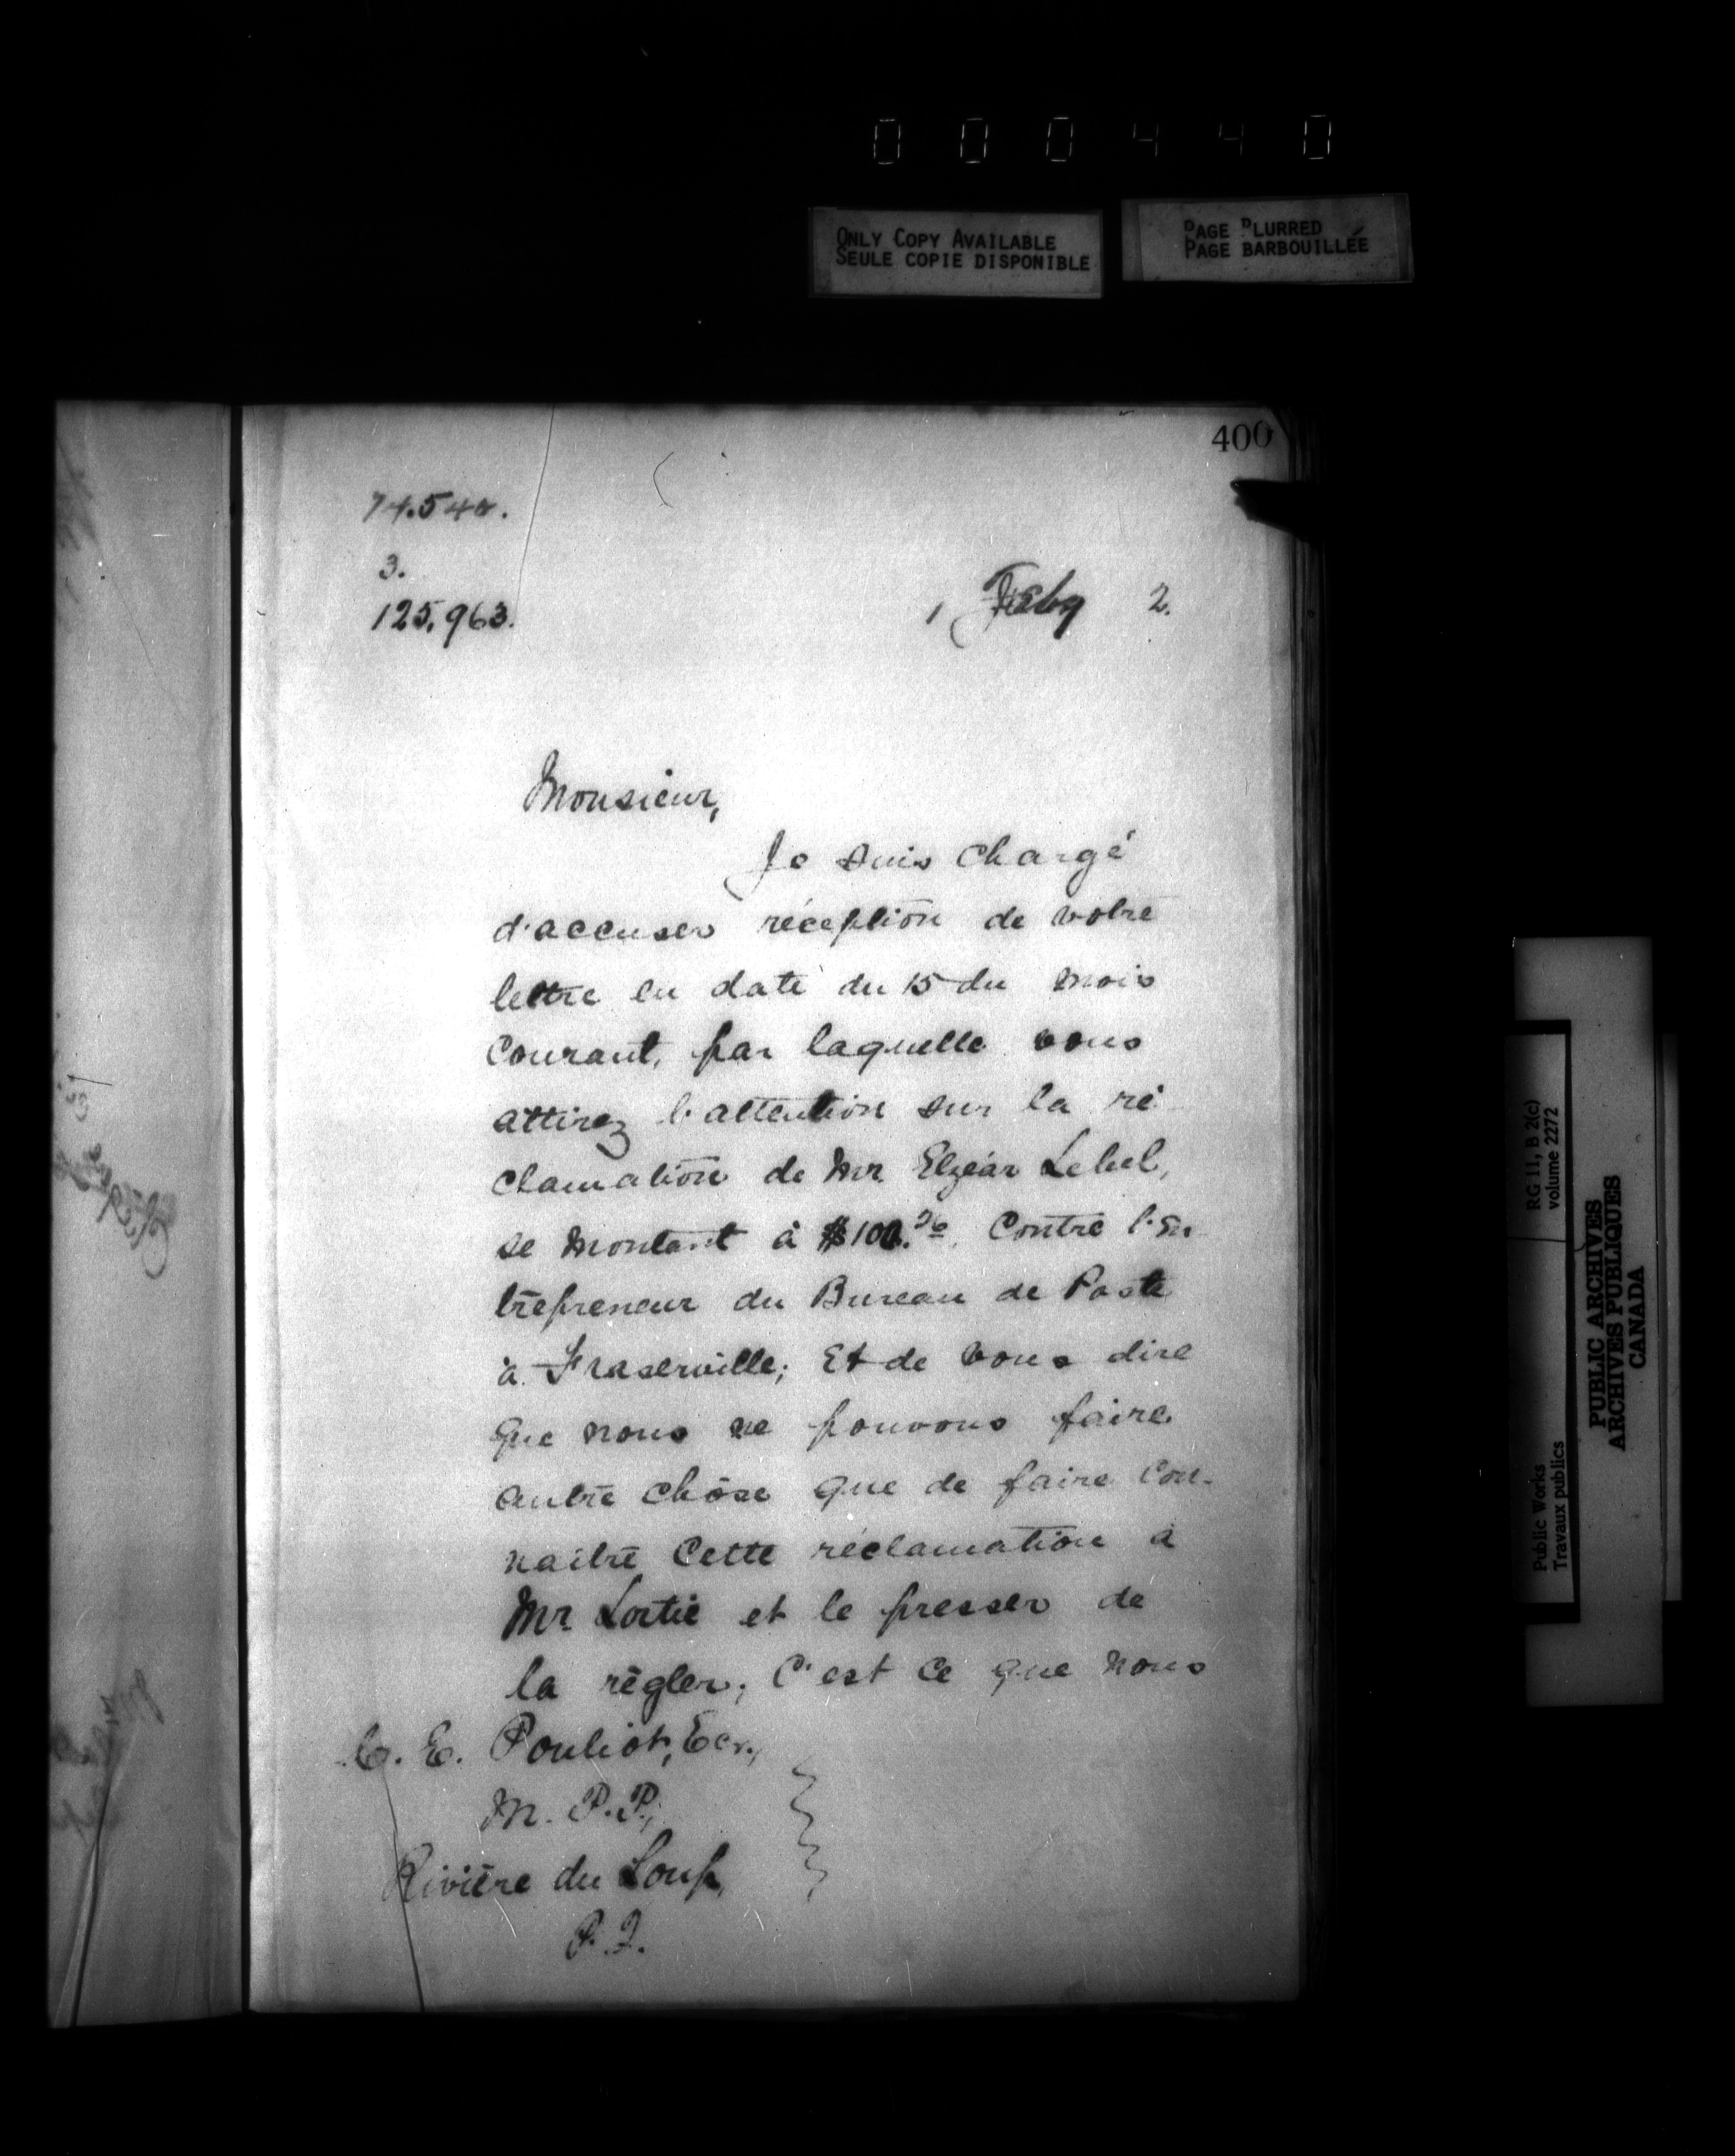 000440
ONLY COPY AVAILABLE
SEULE COPIE DISPONIBLE
PAGE BLURRED
PAGE BARBOUILLÉE
400
74.540.
3.
125,963.
1 Feby 2.
Monsieur,
Je suis chargé
d'accuser réception de votre
lettre en date du 15 du mois
courant, par laquelle vous
attirez l'attention sur la ré
clamation de Mr Elzéar Lebel,
se montant à $100. contre l'En
trepreneur du Bureau de Poste
à Fraserville; Et de vous dire
que nous ne pouvons faire
autre chose que de faire con-
naitre cette réclamation à
Mr Lortie et le presser de
la règler; C'est ce que nous
C. E. Pouliot, Ecr.,
M. P. P.,
Rivière du Loup,
P. Q.
Public Works
Travaux publics
RG 11, B 2(c)
volume 2272
PUBLIC ARCHIVES
ARCHIVES PUBLIQUES
CANADA